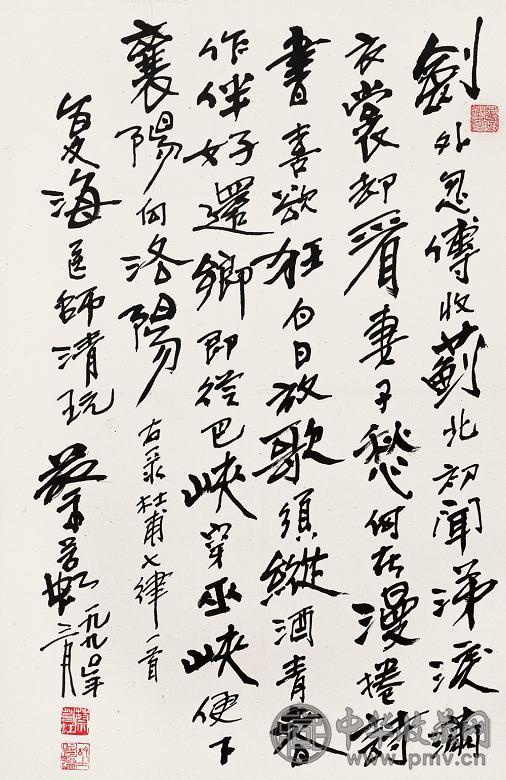 劍外忽傳收薊北初聞涕淚滿
衣裳却看妻子愁何在漫捲詩
書喜欲狂白日放歌須縱酒青春
作伴好還鄉即從巴峽穿巫峽便下
襄陽向洛陽 右录杜甫七律一首
海医師清玩 蔡若虹 一九九〇年
三月
www.pmv.cn